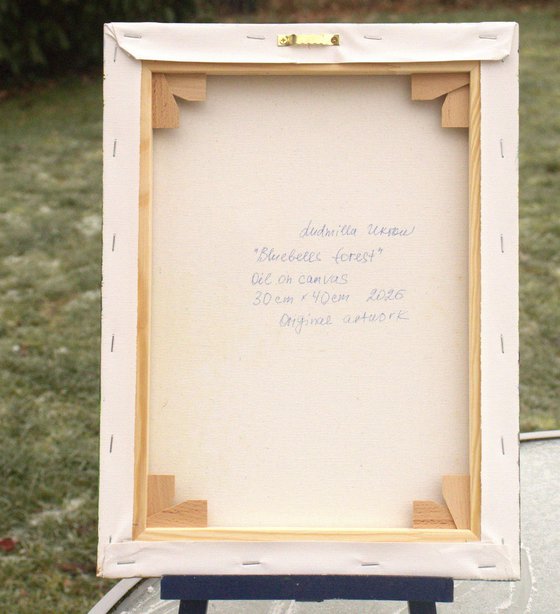 Ludmilla Ukrow
"Bluebells forest"
Oil on canvas
30cm x 40cm 2026
Original artwork